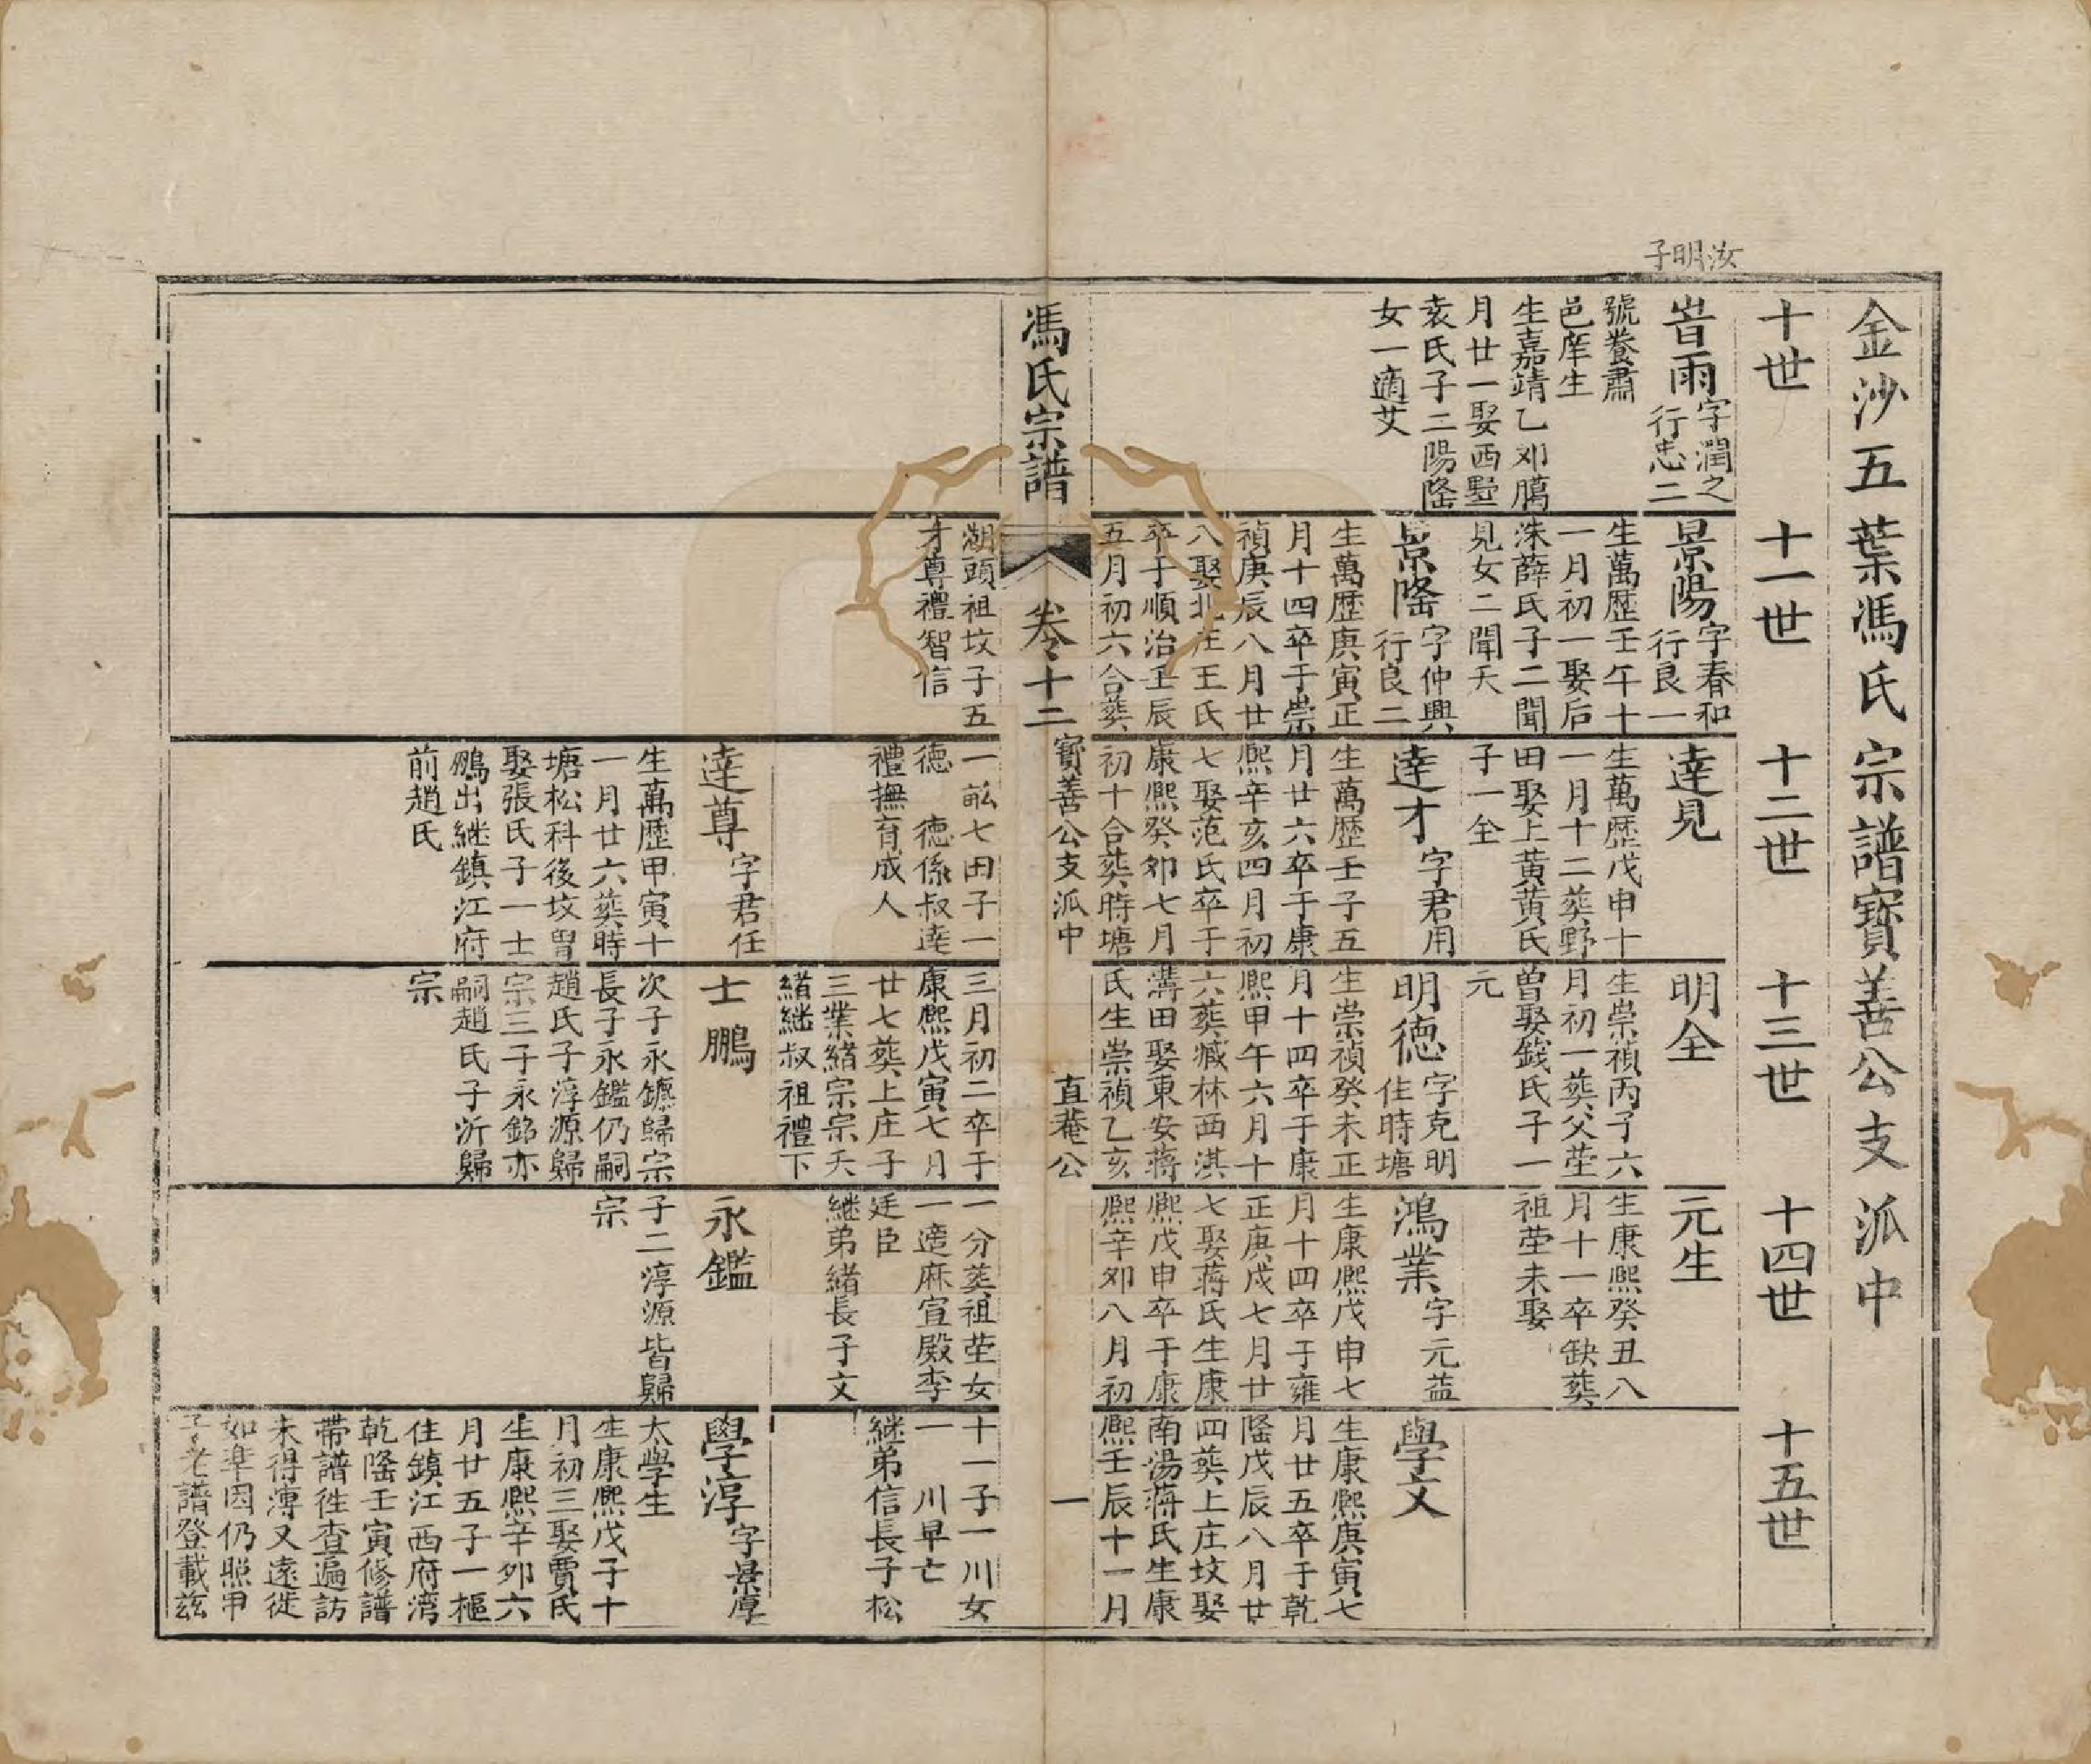 金沙五葉馮氏宗譜寳善公支派中
十世
十一世
十二世
十三世
十四世
十五世
汝明子
時雨
字潤之
行忠二
號養肅
邑庠生
生嘉靖乙夘臈
月廿一娶西墅
袁氏子二陽隆
女一適艾
景陽
字春和
行良一
生萬歴壬午十
一月初一娶后
洙薛氏子二聞
見女二聞夭
景隆
字仲興
行良二
生萬歴庚寅正
月十四卒于崇
禎庚辰八月廿
八娶北庄王氏
卒于順治壬辰
五月初六合葬
湖頭祖坟子五
才尊禮智信
達見
生萬歴戊申十
一月十二葬野
田娶上黄黄氏
子一全
達才
字君用
生萬歴壬子五
月廿六卒于康
熙辛亥四月初
七娶范氏卒于
康熙癸夘七月
初十合葬時塘
一畝七田子一
德　德係叔達
禮撫育成人
達尊
字君任
生萬歴甲寅十
一月廿六葬時
塘松科後坟
娶張氏子一士
鵬出継鎮江府
前趙氏
明全
生崇禎丙子六
月初一葬父茔
曽娶錢氏子一
元
明德
字克明
住時塘
生崇禎癸未正
月十四卒于康
熙甲午六月十
六葬臧林西淇
溝田娶東安蒋
氏生崇禎乙亥
三月初二卒于
康熙戊寅七月
廿七葬上庄子
三業緒宗宗夭
緒継叔祖禮下
士鵬
次子永鑣歸宗
長子永鑑仍嗣
趙氏子淳源歸
宗三子永銘亦
嗣趙氏子沂歸
宗
元生
生康熙癸丑八
月十一卒缺葬
祖茔未娶
鴻業
字元益
生康熙戊申七
月十四卒于雍
正庚戌七月廿
七娶蒋氏生康
熙戊申卒于康
熙辛夘八月初
一分葬祖茔女
一適麻宣殿李
廷臣
継弟緒長子文
永鑑
子二淳源皆歸
宗
學文
生康熙庚寅七
月廿五卒于乾
隆戊辰八月廿
四葬上庄坟娶
南湯蒋氏生康
熙壬辰十一月
十一子一川女
一　川早亡
継弟信長子松
學淳
字景厚
太學生
生康熙戊子十
月初三娶賈氏
生康熙辛夘六
月廿五子一樞
住鎮江西府湾
乾隆壬寅修譜
帶譜徃查遍訪
未得溥又遠徙
如臯因仍照甲
子老譜登載茲
馮氏宗譜
卷十二
寳善公支派中
直菴公
一